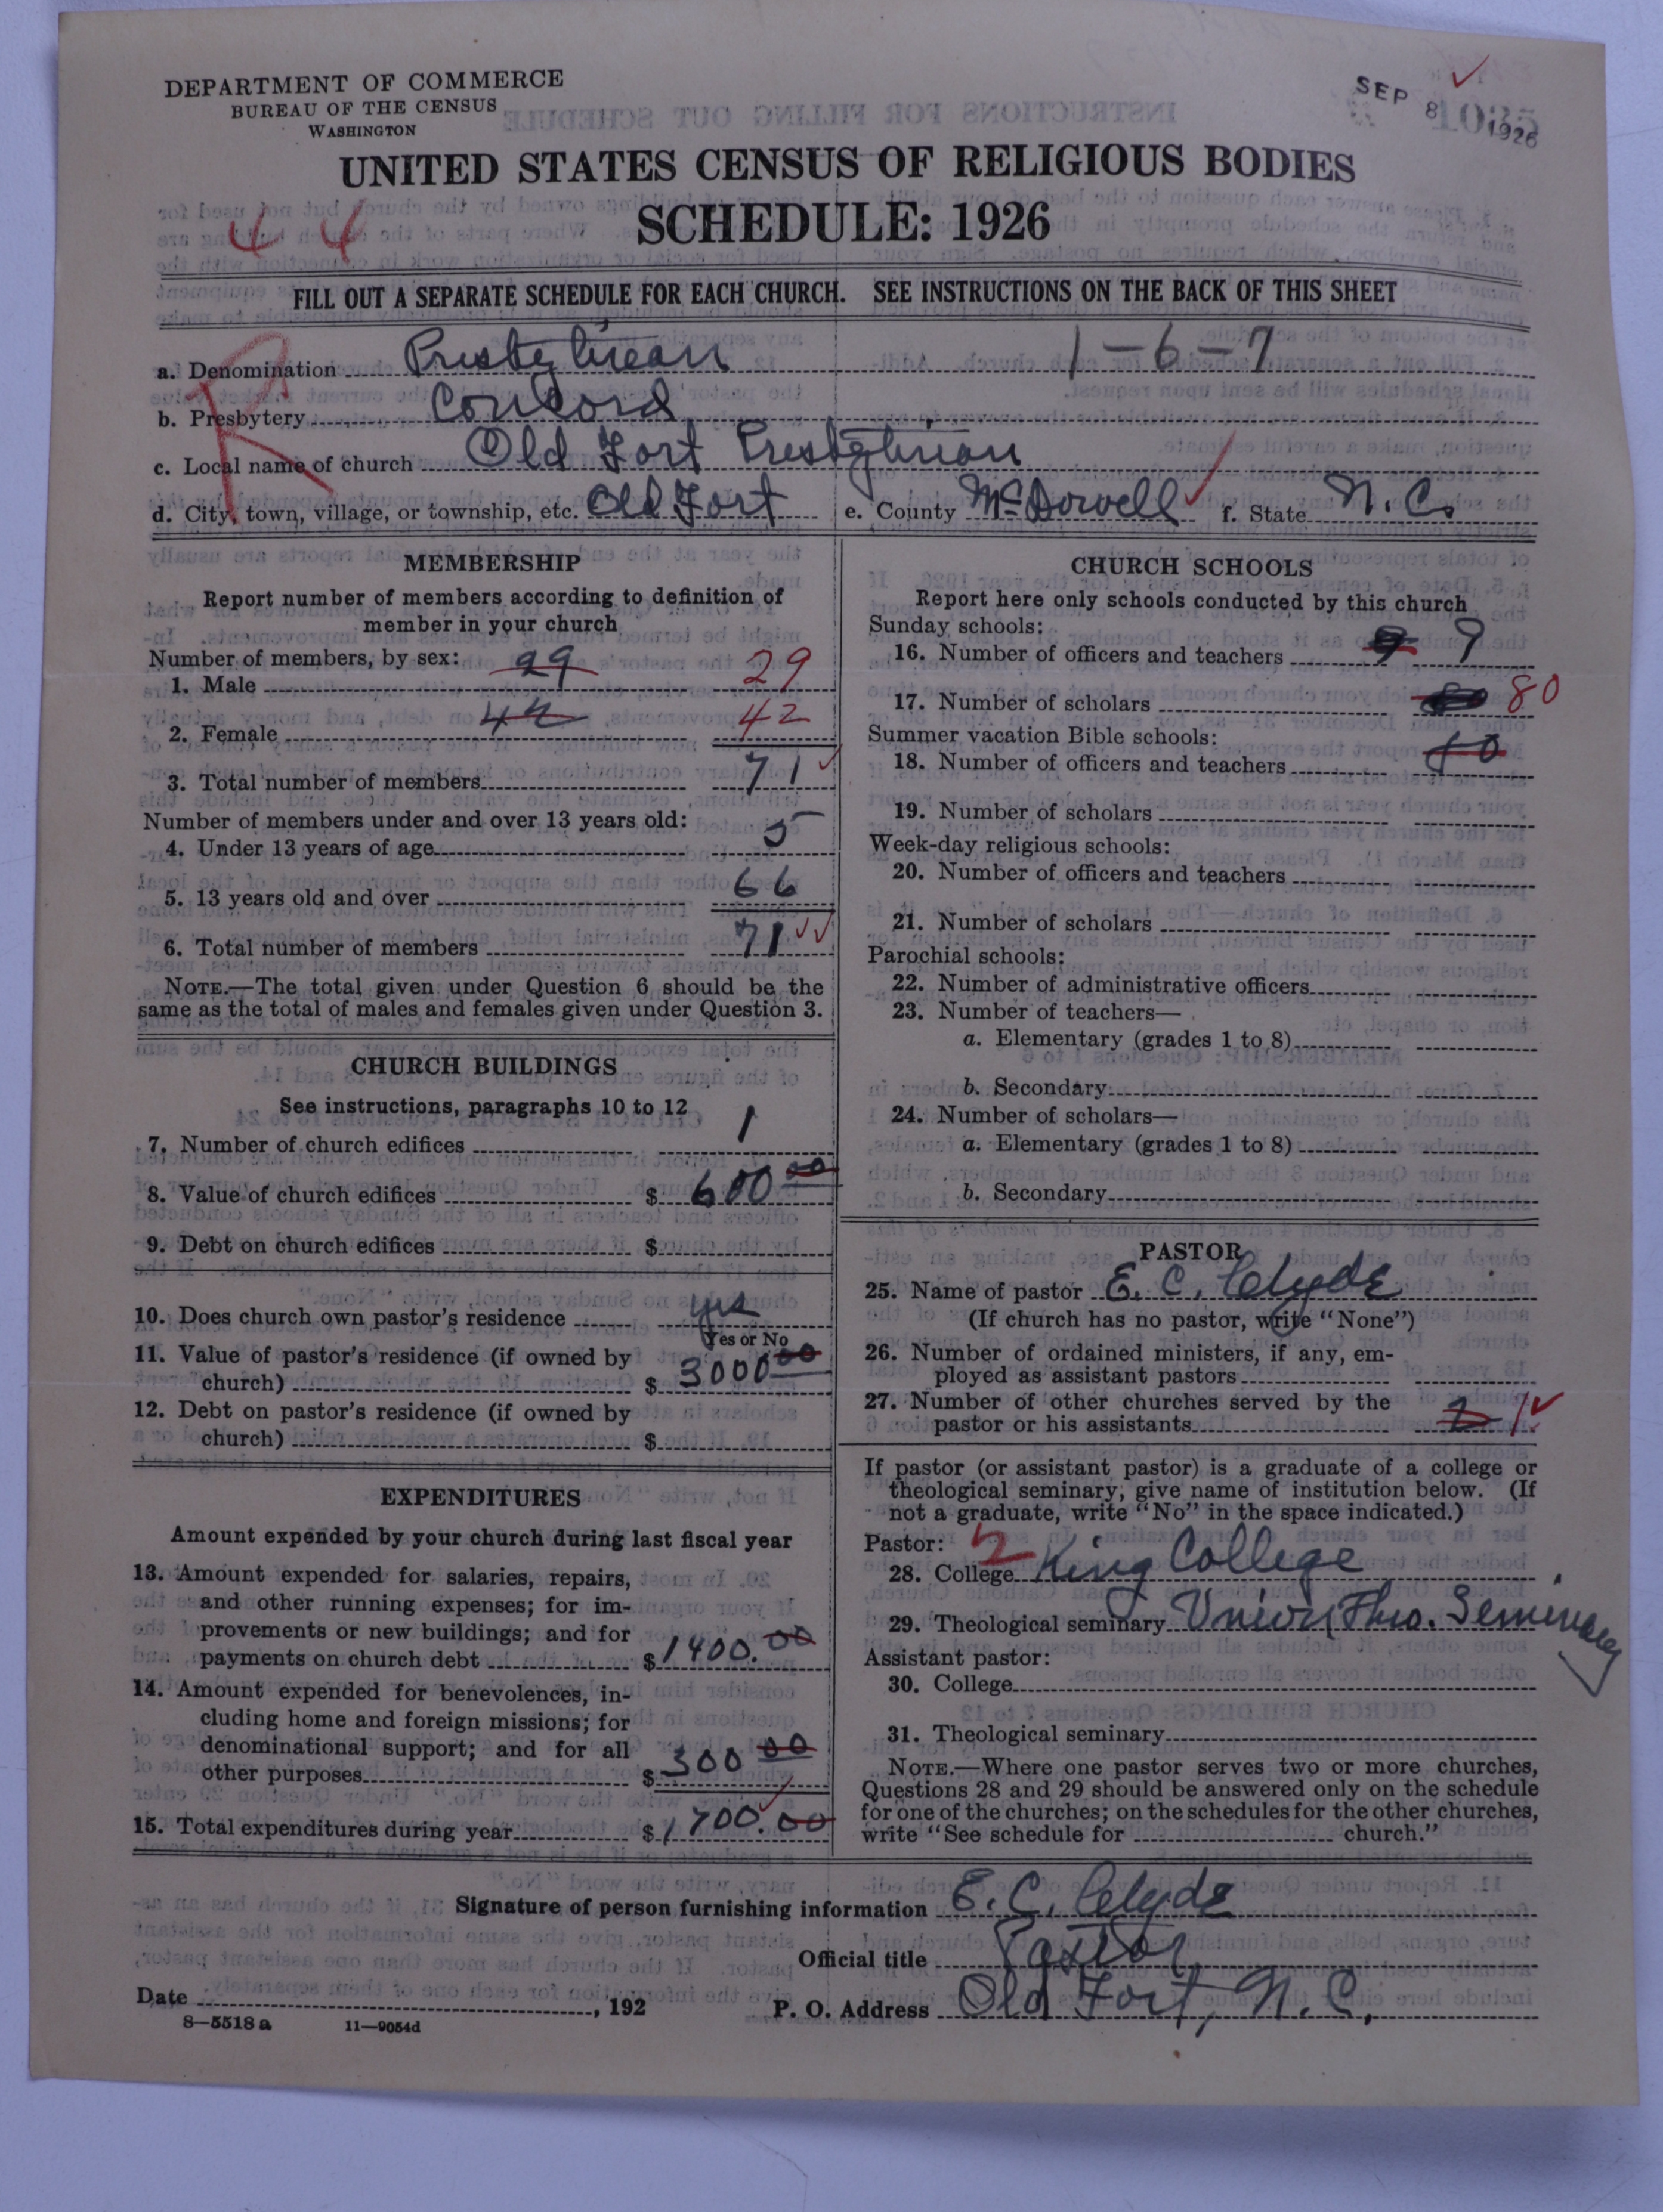 DEPARTMENT OF COMMERCE
BUREAU OF THE CENSUS
WASHINGTON
SEP 8 1926
UNITED STATES CENSUS OF RELIGIOUS BODIES
SCHEDULE: 1926
44
FILL OUT A SEPARATE SCHEDULE FOR EACH CHURCH. SEE INSTRUCTIONS ON THE BACK OF THIS SHEET
R
a. Denomination Presbyterian 1-6-7
b. Presbytery Concord
c. Local name of church Old Fort Presbyterian
d. City, town, village, or township, etc. Old Fort e. County McDowell f. State N.C.
MEMBERSHIP
Report number of members according to definition of
member in your church
Number of members, by sex:
1. Male 29 29
2. Female 42 42
3. Total number of members 71
Number of members under and over 13 years old:
4. Under 13 years of age 5
5. 13 years old and over 66
6. Total number of members 71
NOTE.—The total given under Question 6 should be the
same as the total of males and females given under Question 3.
CHURCH BUILDINGS
See instructions, paragraphs 10 to 12
7. Number of church edifices 1
8. Value of church edifices $ 600 00
9. Debt on church edifices $
10. Does church own pastor's residence yes
Yes or No
11. Value of pastor's residence (if owned by
church) $ 3000 00
12. Debt on pastor's residence (if owned by
church) $
EXPENDITURES
Amount expended by your church during last fiscal year
13. Amount expended for salaries, repairs,
and other running expenses; for im-
provements or new buildings; and for
payments on church debt $ 1400.00
14. Amount expended for benevolences, in-
cluding home and foreign missions; for
denominational support; and for all
other purposes $ 300 00
15. Total expenditures during year $ 1700.00
CHURCH SCHOOLS
Report here only schools conducted by this church
Sunday schools:
16. Number of officers and teachers 9 9
17. Number of scholars 80
Summer vacation Bible schools:
18. Number of officers and teachers
19. Number of scholars
Week-day religious schools:
20. Number of officers and teachers
21. Number of scholars
Parochial schools:
22. Number of administrative officers
23. Number of teachers—
a. Elementary (grades 1 to 8)
b. Secondary
24. Number of scholars—
a. Elementary (grades 1 to 8)
b. Secondary
PASTOR
25. Name of pastor E. C. Clyde
(If church has no pastor, write "None")
26. Number of ordained ministers, if any, em-
ployed as assistant pastors
27. Number of other churches served by the
pastor or his assistants 2 1
If pastor (or assistant pastor) is a graduate of a college or
theological seminary, give name of institution below. (If
not a graduate, write "No" in the space indicated.)
Pastor:
28. College King College
29. Theological seminary Union Theo. Seminary
Assistant pastor:
30. College
31. Theological seminary
NOTE.—Where one pastor serves two or more churches,
Questions 28 and 29 should be answered only on the schedule
for one of the churches; on the schedules for the other churches,
write "See schedule for church."
Signature of person furnishing information E. C. Clyde
Official title Pastor
Date , 192 P. O. Address Old Fort, N.C.
8—5518 a 11—9054d